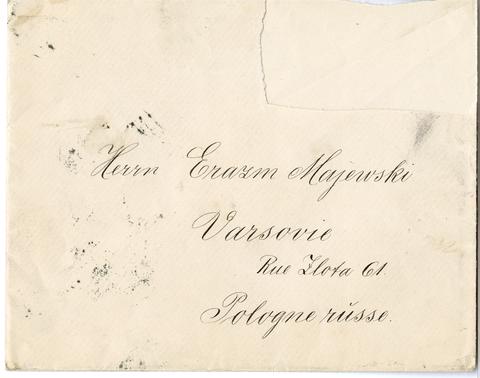 Herrn Erazm Majewski
Varsovie
Rue Zlota 61
Pologne rŭsse.